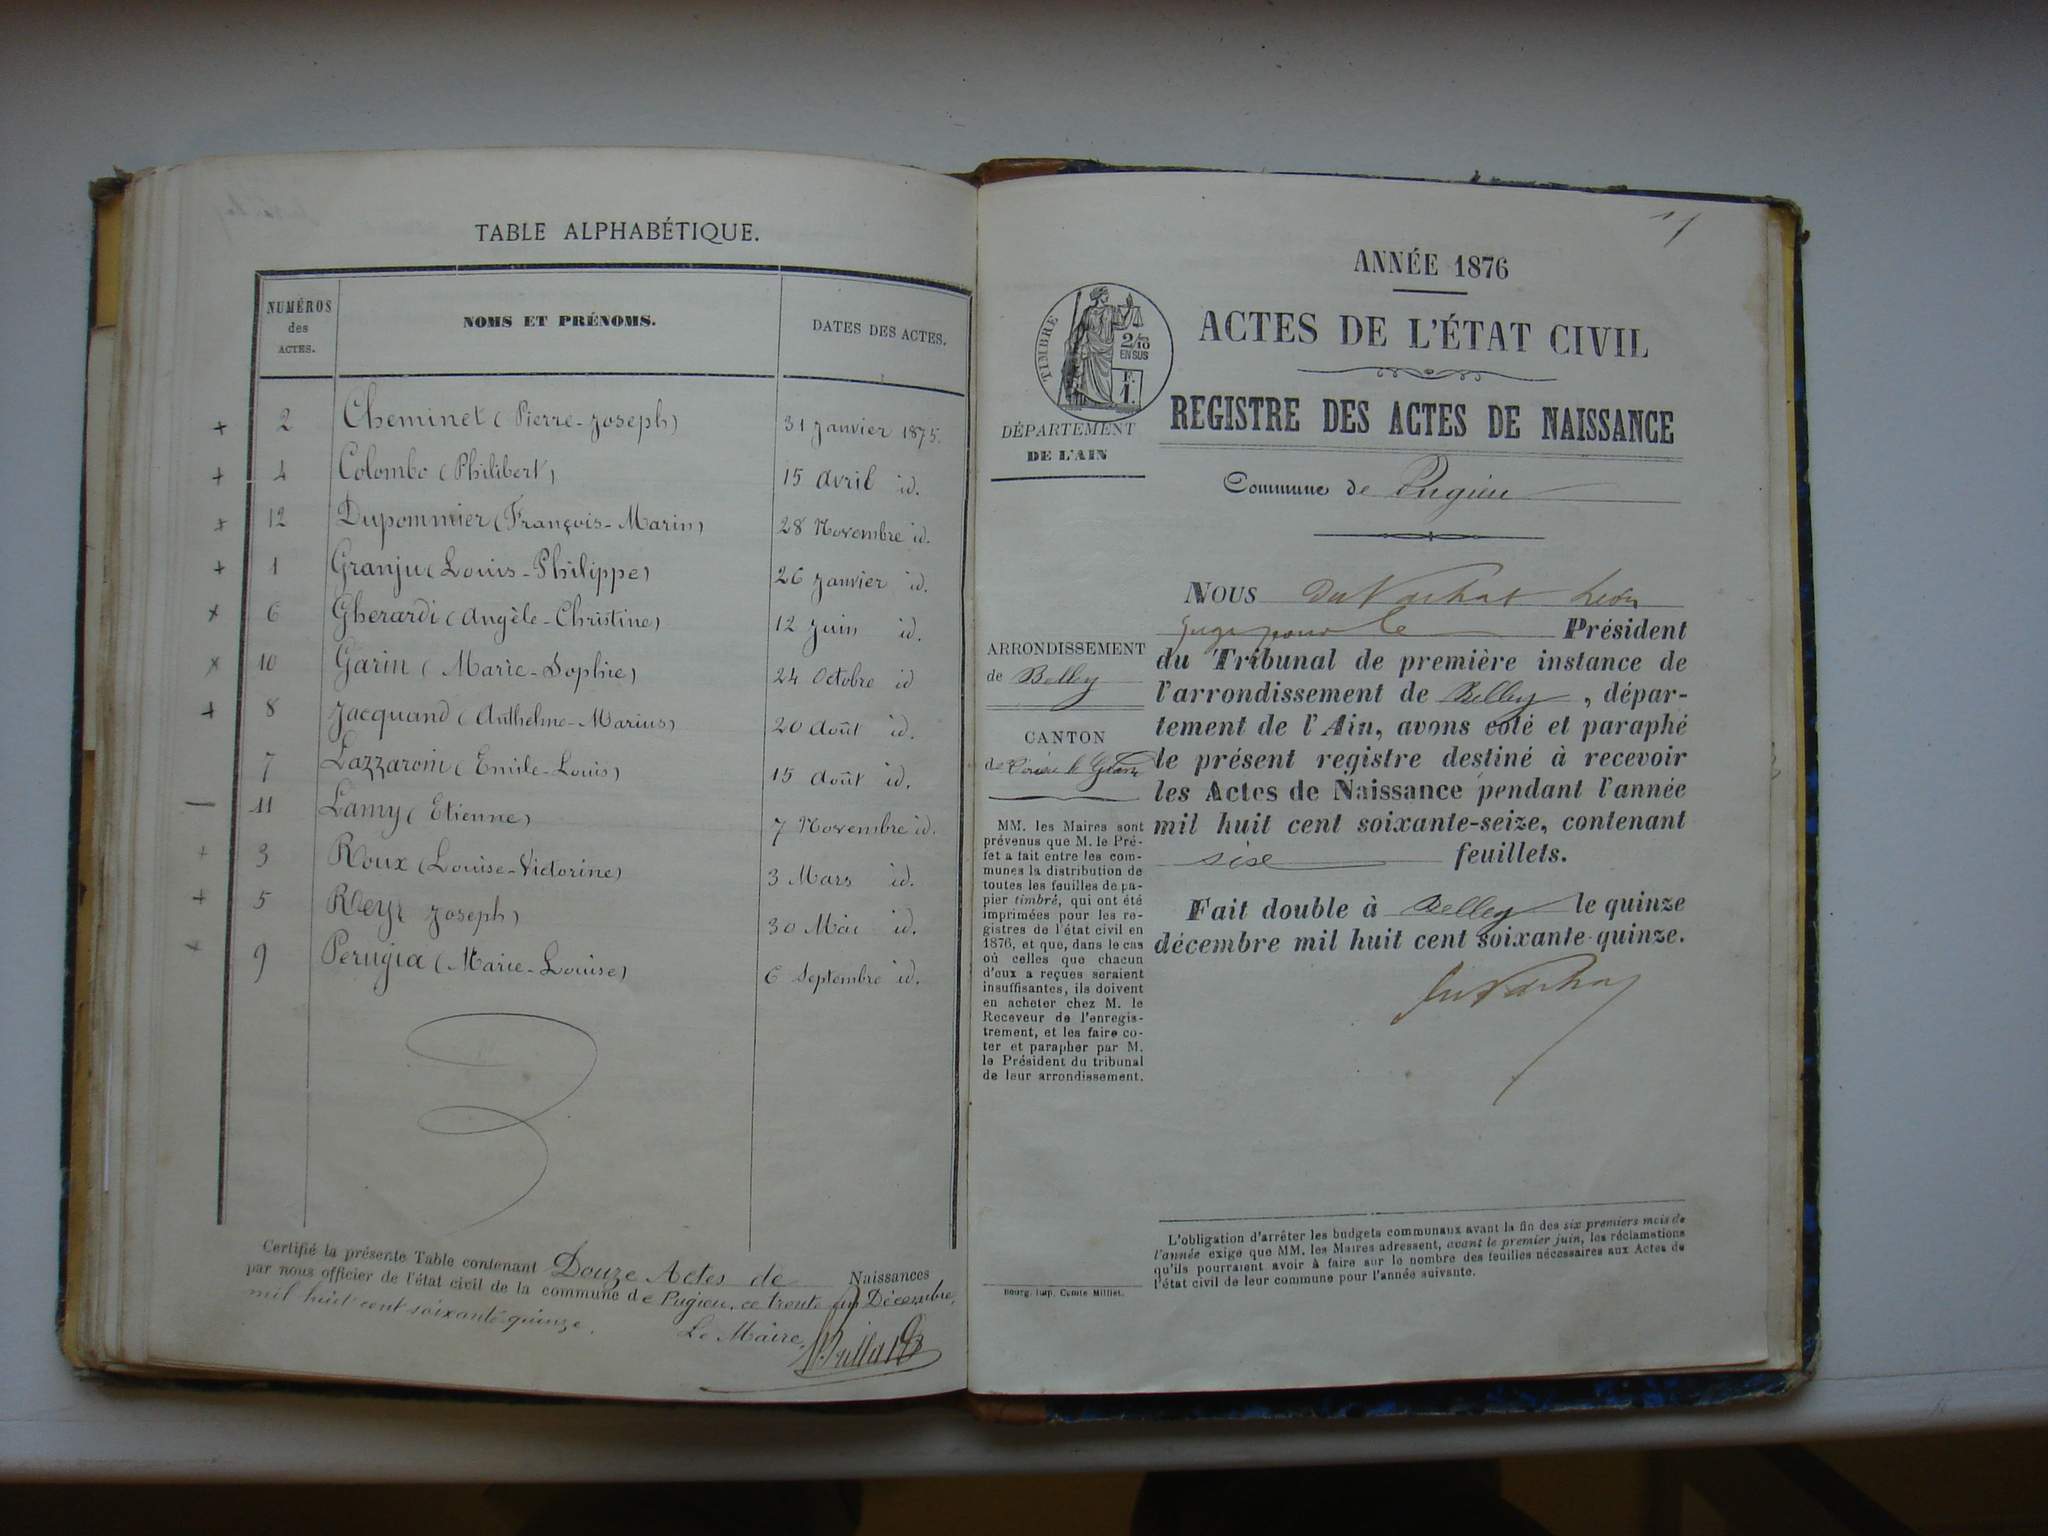 TABLE ALPHABÉTIQUE.
NUMÉROS des ACTES. NOMS ET PRÉNOMS. DATES DES ACTES.
+ 2 Cheminet (Pierre-Joseph) 31 Janvier 1875.
+ 4 Colombo (Philibert) 15 Avril id.
+ 12 Dupommier (François-Marin) 28 Novembre id.
+ 1 Granju (Louis-Philippe) 26 Janvier id.
+ 6 Gherardi (Angèle-Christine) 12 Juin id.
+ 10 Garin (Marie-Sophie) 24 Octobre id
+ 8 Jacquand (Anthelme-Marius) 20 Août id.
7 Lazzaroni (Emile-Louis) 15 Août id.
— 11 Lamy (Etienne) 7 Novembre id.
+ 3 Roux (Louise-Victorine) 3 Mars id.
+ 5 Rey Joseph) 30 Mai id.
+ 9 Perugia (Marie-Louise) 6 Septembre id.
Certifié la présente Table contenant Douze Actes de Naissances
par nous officier de l'état civil de la commune de Pugieu, ce trente un Décembre,
mil huit cent soixante-quinze.
Le Maire,
ANNÉE 1876
ACTES DE L'ÉTAT CIVIL
REGISTRE DES ACTES DE NAISSANCE
Commune de Pugieu
TIMBRE
2/10
EN SUS
F.
1.
DÉPARTEMENT
DE L'AIN
ARRONDISSEMENT
de Belley
CANTON
de
MM. les Maires sont
prévenus que M. le Pré-
fet a fait entre les com-
munes la distribution de
toutes les feuilles de pa-
pier timbré, qui ont été
imprimées pour les re-
gistres de l'état civil en
1876, et que, dans le cas
où celles que chacun
d'eux a reçues seraient
insuffisantes, ils doivent
en acheter chez M. le
Receveur de l'enregis-
trement, et les faire co-
ter et parapher par M.
le Président du tribunal
de leur arrondissement.
Bourg, imp. Comte Milliet.
NOUS
Juge pour le Président
du Tribunal de première instance de
l'arrondissement de Belley, dépar-
tement de l'Ain, avons coté et paraphé
le présent registre destiné à recevoir
les Actes de Naissance pendant l'année
mil huit cent soixante-seize, contenant
six feuillets.
Fait double à Belley le quinze
décembre mil huit cent soixante-quinze.
L'obligation d'arrêter les budgets communaux avant la fin des six premiers mois de
l'année exige que MM. les Maires adressent, avant le premier juin, les réclamations
qu'ils pourraient avoir à faire sur le nombre des feuilles nécessaires aux Actes de
l'état civil de leur commune pour l'année suivante.